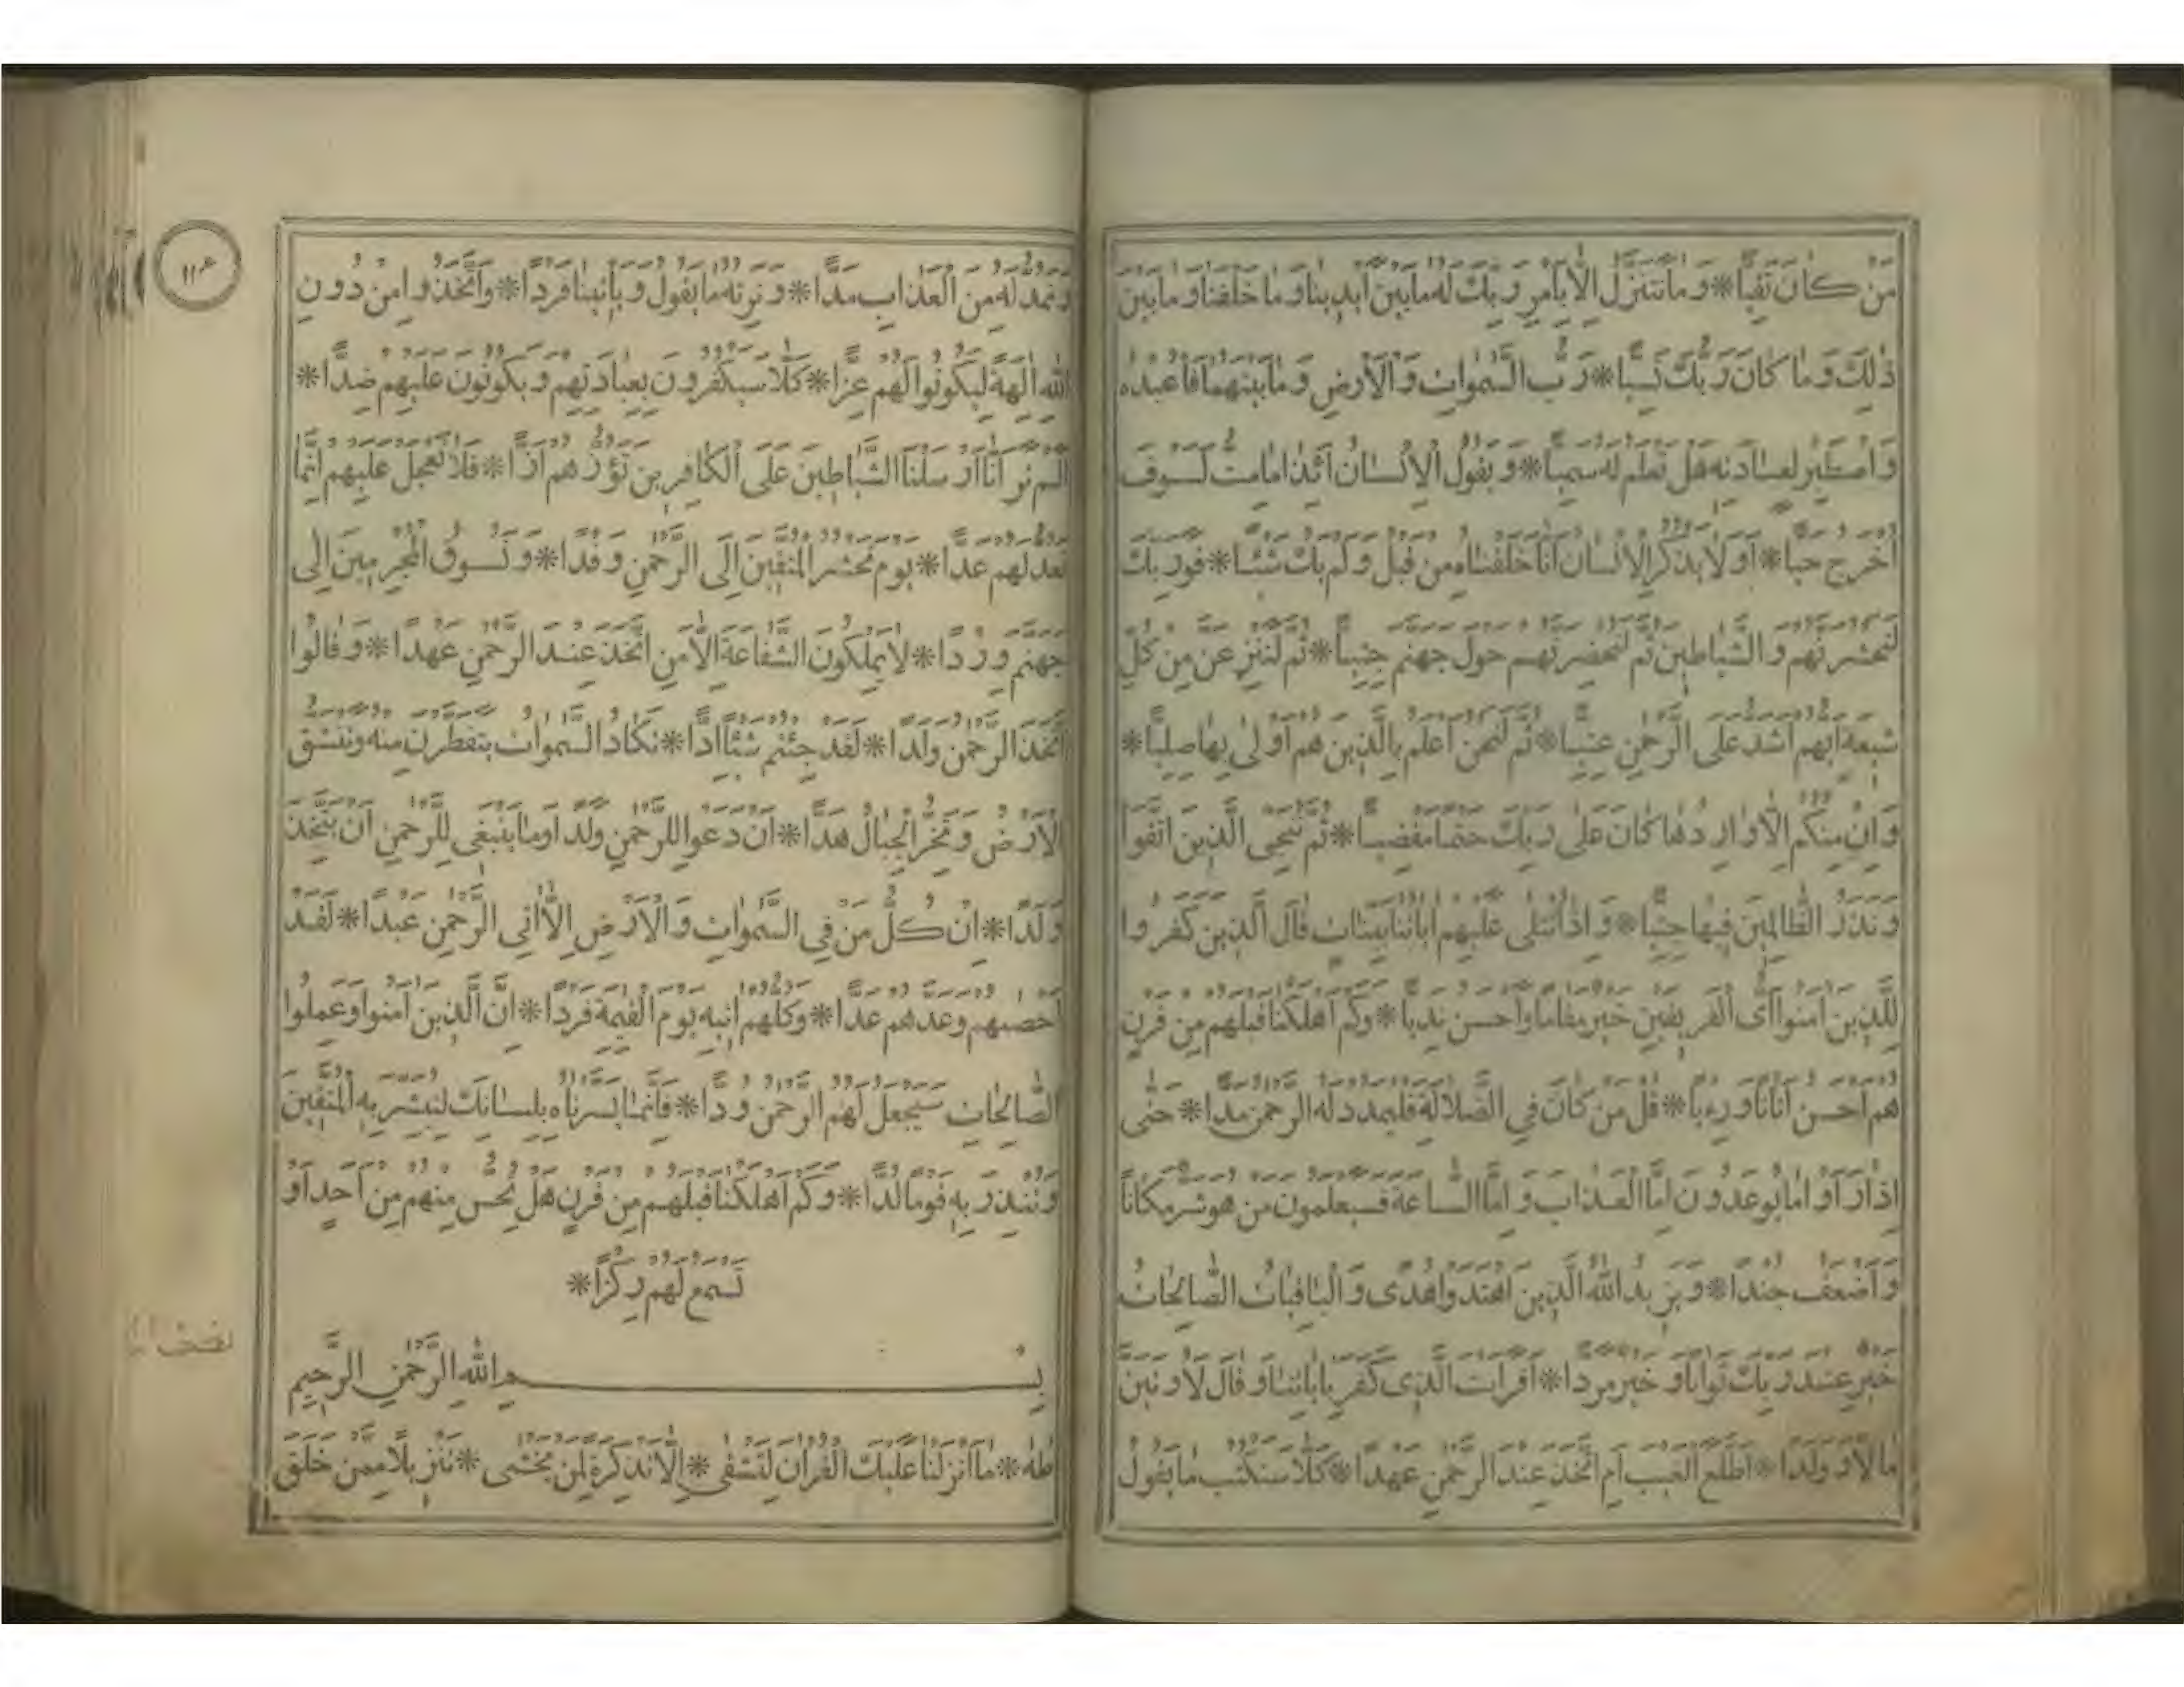 مَنْ كَانَ تَقِيًّا * وَمَا نَتَنَزَّلُ اِلَّا بِاَمْرِ رَبِّكَ لَهُ مَا بَيْنَ اَيْدِينَا وَمَا خَلْفَنَا وَمَا بَيْنَ
ذٰلِكَ وَمَا كَانَ رَبُّكَ نَسِيًّا * رَبُّ السَّمٰوَاتِ وَالْاَرْضِ وَمَا بَيْنَهُمَا فَاعْبُدْهُ
وَاصْطَبِرْ لِعِبَادَتِهِ هَلْ تَعْلَمُ لَهُ سَمِيًّا * وَيَقُولُ الْاِنْسَانُ اَئِذَا مَا مِتُّ لَسَوْفَ
اُخْرَجُ حَيًّا * اَوَلَا يَذْكُرُ الْاِنْسَانُ اَنَّا خَلَقْنَاهُ مِنْ قَبْلُ وَلَمْ يَكُ شَيْئًا * فَوَرَبِّكَ
لَنَحْشُرَنَّهُمْ وَالشَّيَاطِينَ ثُمَّ لَنُحْضِرَنَّهُمْ حَوْلَ جَهَنَّمَ جِثِيًّا * ثُمَّ لَنَنْزِعَنَّ مِنْ كُلِّ
شِيعَةٍ اَيُّهُمْ اَشَدُّ عَلَى الرَّحْمٰنِ عِتِيًّا * ثُمَّ لَنَحْنُ اَعْلَمُ بِالَّذِينَ هُمْ اَوْلٰى بِهَا صِلِيًّا *
وَاِنْ مِنْكُمْ اِلَّا وَارِدُهَا كَانَ عَلٰى رَبِّكَ حَتْمًا مَقْضِيًّا * ثُمَّ نُنَجِّي الَّذِينَ اتَّقَوْا
وَنَذَرُ الظَّالِمِينَ فِيهَا جِثِيًّا * وَاِذَا تُتْلٰى عَلَيْهِمْ اٰيَاتُنَا بَيِّنَاتٍ قَالَ الَّذِينَ كَفَرُوا
لِلَّذِينَ اٰمَنُوا اَيُّ الْفَرِيقَيْنِ خَيْرٌ مَقَامًا وَاَحْسَنُ نَدِيًّا * وَكَمْ اَهْلَكْنَا قَبْلَهُمْ مِنْ قَرْنٍ
هُمْ اَحْسَنُ اَثَاثًا وَرِءْيًا * قُلْ مَنْ كَانَ فِي الضَّلَالَةِ فَلْيَمْدُدْ لَهُ الرَّحْمٰنُ مَدًّا * حَتّٰى
اِذَا رَاَوْا مَا يُوعَدُونَ اِمَّا الْعَذَابَ وَاِمَّا السَّاعَةَ فَسَيَعْلَمُونَ مَنْ هُوَ شَرٌّ مَكَانًا
وَاَضْعَفُ جُنْدًا * وَيَزِيدُ اللّٰهُ الَّذِينَ اهْتَدَوْا هُدًى وَالْبَاقِيَاتُ الصَّالِحَاتُ
خَيْرٌ عِنْدَ رَبِّكَ ثَوَابًا وَخَيْرٌ مَرَدًّا * اَفَرَاَيْتَ الَّذِي كَفَرَ بِاٰيَاتِنَا وَقَالَ لَاُوتَيَنَّ
مَالًا وَوَلَدًا * اَطَّلَعَ الْغَيْبَ اَمِ اتَّخَذَ عِنْدَ الرَّحْمٰنِ عَهْدًا * كَلَّا سَنَكْتُبُ مَا يَقُولُ
١١٣
وَنَمُدُّ لَهُ مِنَ الْعَذَابِ مَدًّا * وَنَرِثُهُ مَا يَقُولُ وَيَاْتِينَا فَرْدًا * وَاتَّخَذُوا مِنْ دُونِ
اللّٰهِ اٰلِهَةً لِيَكُونُوا لَهُمْ عِزًّا * كَلَّا سَيَكْفُرُونَ بِعِبَادَتِهِمْ وَيَكُونُونَ عَلَيْهِمْ ضِدًّا *
اَلَمْ تَرَ اَنَّا اَرْسَلْنَا الشَّيَاطِينَ عَلَى الْكَافِرِينَ تَؤُزُّهُمْ اَزًّا * فَلَا تَعْجَلْ عَلَيْهِمْ اِنَّمَا
نَعُدُّ لَهُمْ عَدًّا * يَوْمَ نَحْشُرُ الْمُتَّقِينَ اِلَى الرَّحْمٰنِ وَفْدًا * وَنَسُوقُ الْمُجْرِمِينَ اِلٰى
جَهَنَّمَ وِرْدًا * لَا يَمْلِكُونَ الشَّفَاعَةَ اِلَّا مَنِ اتَّخَذَ عِنْدَ الرَّحْمٰنِ عَهْدًا * وَقَالُوا
اتَّخَذَ الرَّحْمٰنُ وَلَدًا * لَقَدْ جِئْتُمْ شَيْئًا اِدًّا * تَكَادُ السَّمٰوَاتُ يَتَفَطَّرْنَ مِنْهُ وَتَنْشَقُّ
الْاَرْضُ وَتَخِرُّ الْجِبَالُ هَدًّا * اَنْ دَعَوْا لِلرَّحْمٰنِ وَلَدًا وَمَا يَنْبَغِي لِلرَّحْمٰنِ اَنْ يَتَّخِذَ
وَلَدًا * اِنْ كُلُّ مَنْ فِي السَّمٰوَاتِ وَالْاَرْضِ اِلَّا اٰتِي الرَّحْمٰنِ عَبْدًا * لَقَدْ
اَحْصٰيهُمْ وَعَدَّهُمْ عَدًّا * وَكُلُّهُمْ اٰتِيهِ يَوْمَ الْقِيٰمَةِ فَرْدًا * اِنَّ الَّذِينَ اٰمَنُوا وَعَمِلُوا
الصَّالِحَاتِ سَيَجْعَلُ لَهُمُ الرَّحْمٰنُ وُدًّا * فَاِنَّمَا يَسَّرْنَاهُ بِلِسَانِكَ لِتُبَشِّرَ بِهِ الْمُتَّقِينَ
وَتُنْذِرَ بِهِ قَوْمًا لُدًّا * وَكَمْ اَهْلَكْنَا قَبْلَهُمْ مِنْ قَرْنٍ هَلْ تُحِسُّ مِنْهُمْ مِنْ اَحَدٍ اَوْ
تَسْمَعُ لَهُمْ رِكْزًا *
بِسْمِ اللّٰهِ الرَّحْمٰنِ الرَّحِيمِ
طٰهٰ * مَا اَنْزَلْنَا عَلَيْكَ الْقُرْاٰنَ لِتَشْقٰى * اِلَّا تَذْكِرَةً لِمَنْ يَخْشٰى * تَنْزِيلًا مِمَّنْ خَلَقَ